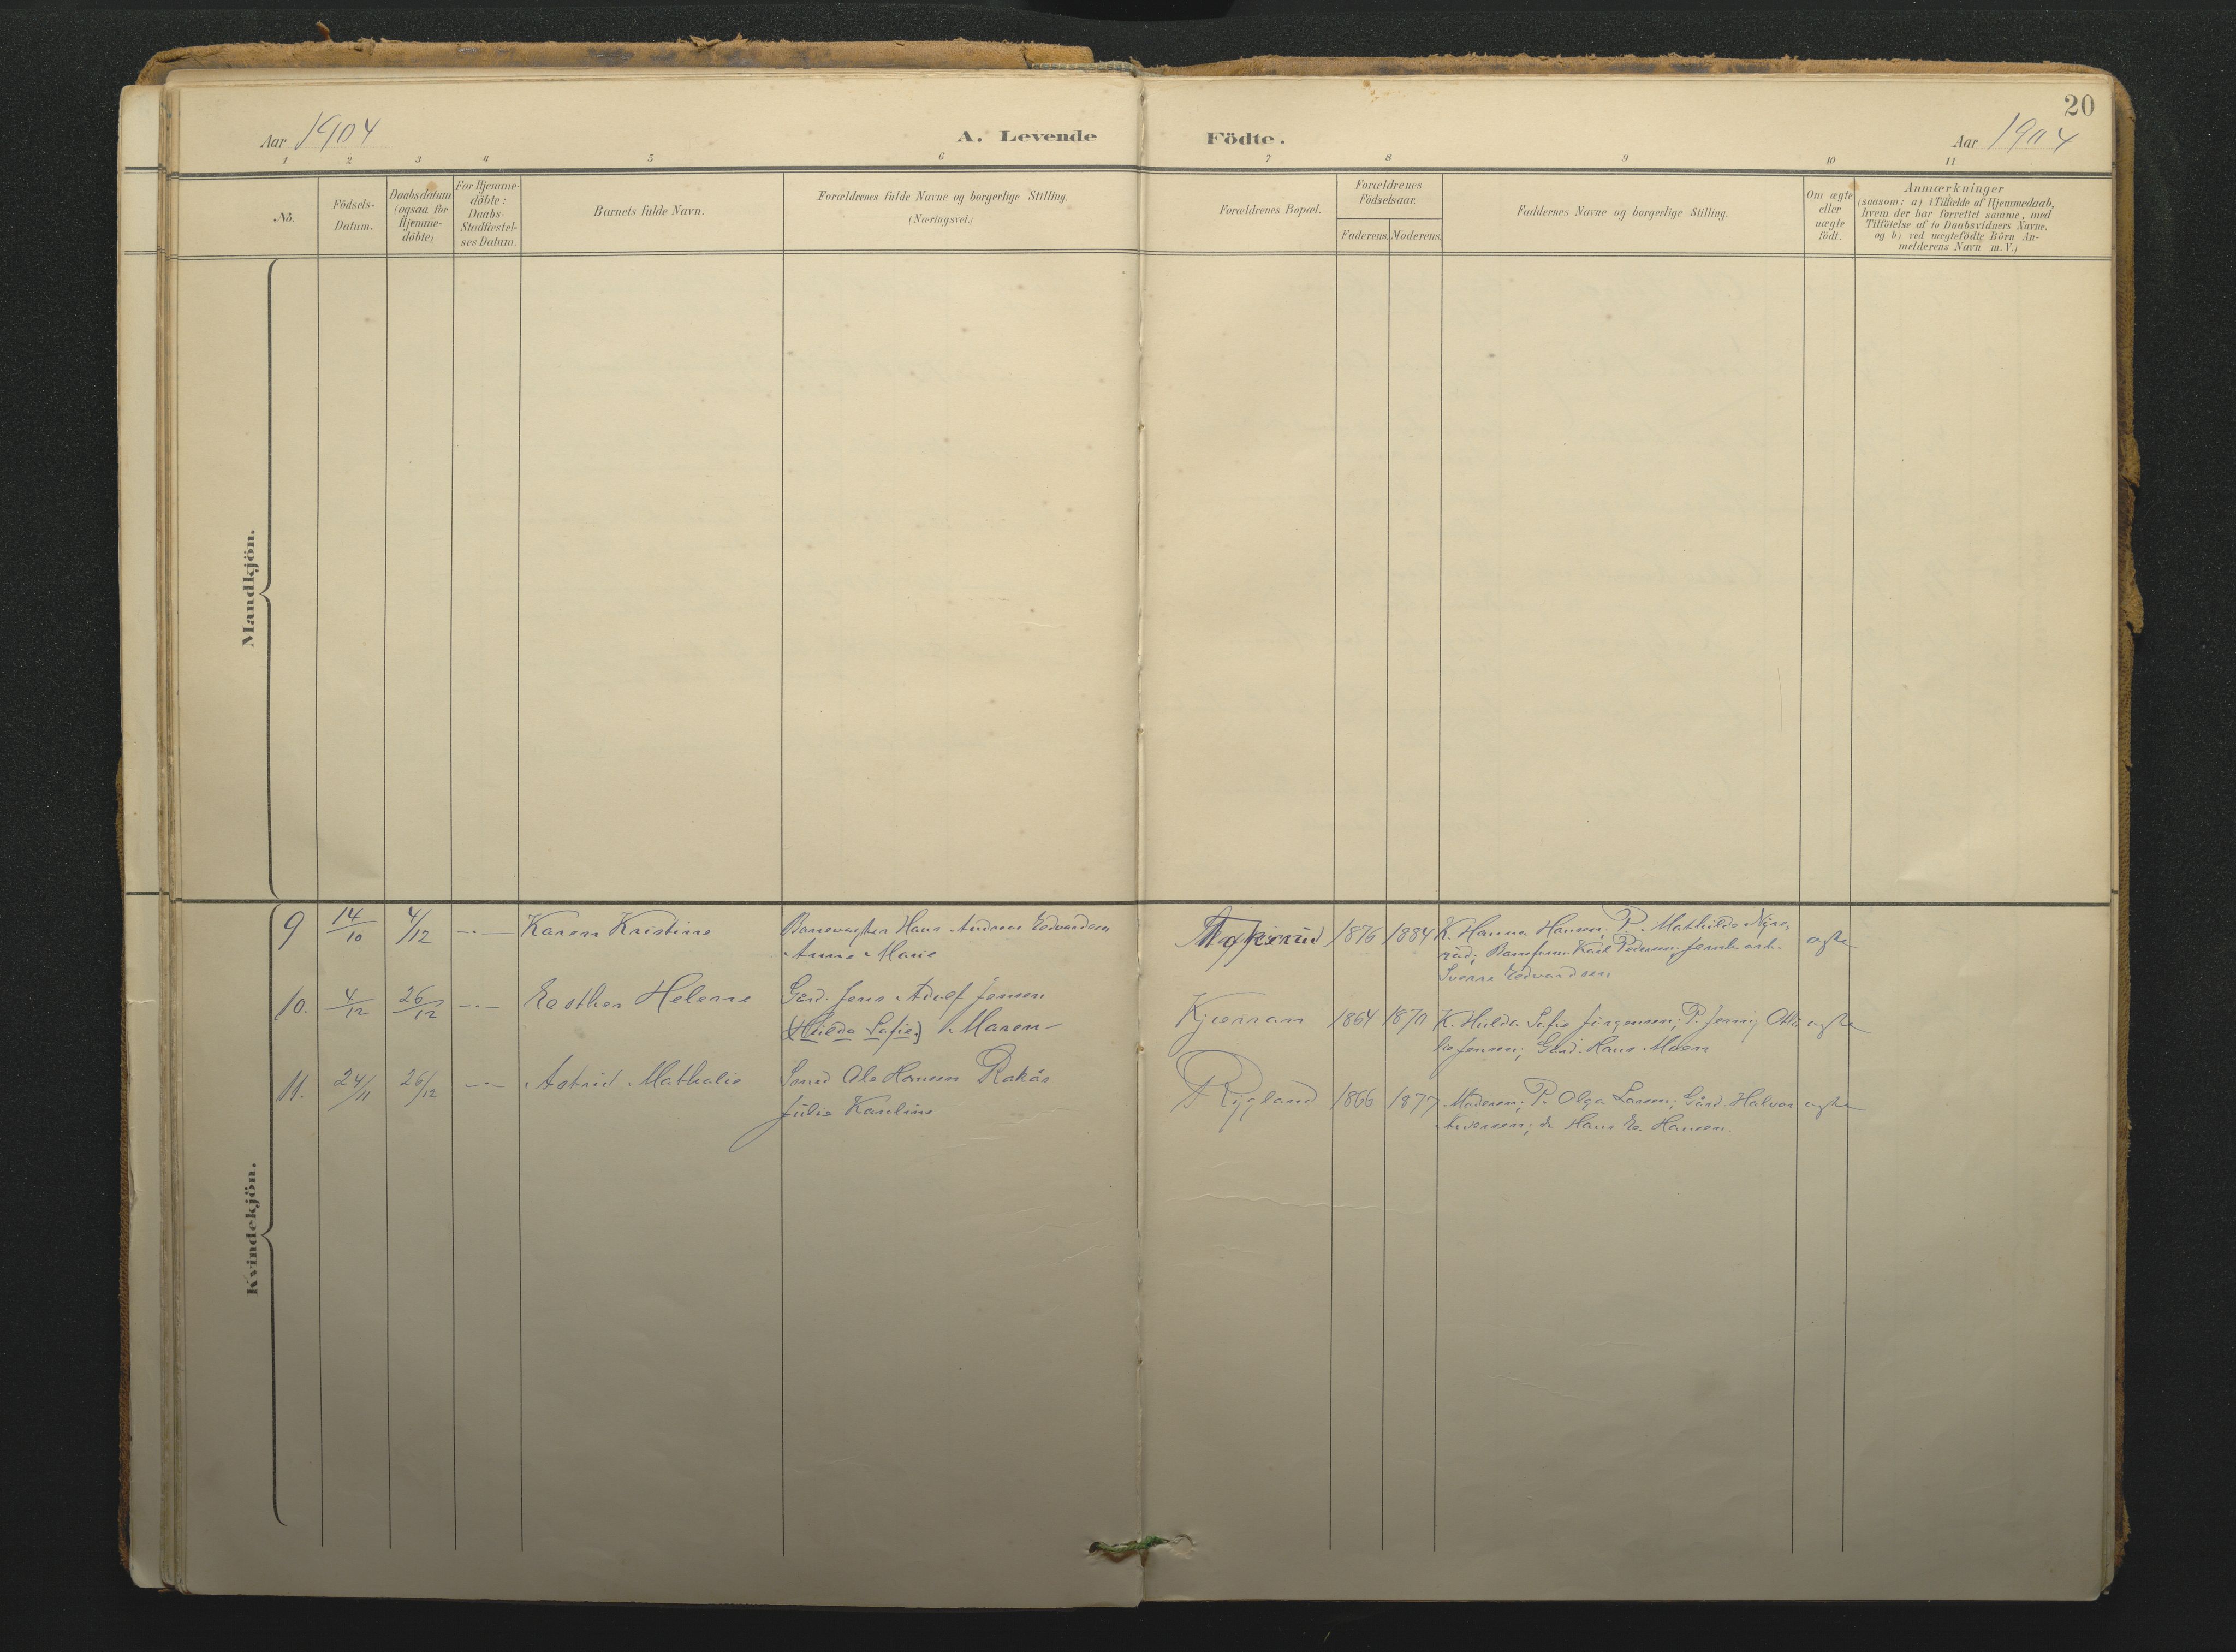 20
Aar 1904
A. Levende Födte.
Aar 1904
1 2 3 4 5 6 7 8 9 10 11
No.
Födsels-
Datum.
Daabsdatum
(ogsaa for
Hjemme-
döbte)
For Hjemme-
döbte:
Daabs-
Stadfæstel-
ses Datum.
Barnets fulde Navn.
Forældrenes fulde Navne og borgerlige Stilling.
(Næringsvei.)
Forældrenes Bopæl.
Forældrenes
Födselsaar.
Faderens. Moderens.
Faddernes Navne og borgerlige Stilling.
Om ægte
eller
uægte
födt.
Anmærkninger
(saasom: a) i Tilfælde af Hjemmedaab,
hvem der har forrettet samme, med
Tilföielse af to Daabsvidners Navne.
og b) ved uægtefödte Börn An-
melderens Navn m. V.)
Mandkjön.
Kvindekjön.
9 14/10 4/12 -·- Karen Kristine
Banevagter Hans Andreas Edvardsen
Anne Marie
1876 1884
K. Hanna Hansen; P. Mathilde
Karl Pedersen;
Sverre Edvardsen
ægte
10. 4/12 26/12 -·- Esther Helene
Gård. Jens Adolf Jensen
(Hulda Sofie) Maren
Kjærran 1864 1870
K. Hulda Sofie Jörgensen; P. Jenny Otti
lie Jensen; Gård. Hans Moen
ægte
11. 24/11 26/12 -·- Astrid Mathalie
Smed Ole Hansen Rakås
Julie Karoline
Rygland 1866 1877
Moderen; P. Olga Larsen; Gård. Halvor
Andersen; do Hans E. Hansen.
ægte